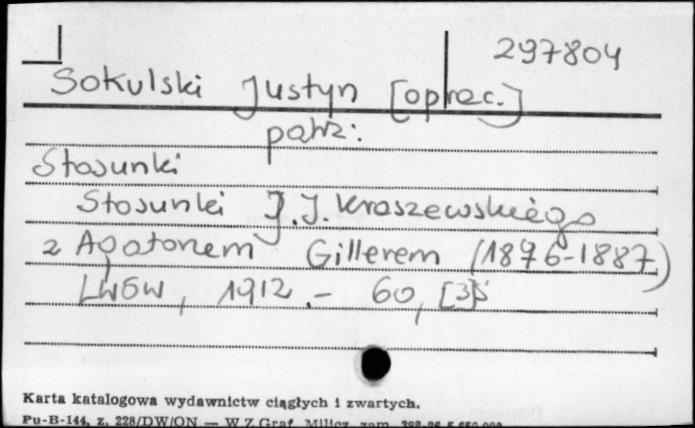 297804
Sokulski Justyn [oprac.]
patrz:
Stosunki
Stosunki J.J. Kraszewskiego
z Agatonem Gillerem (1876-1887)
Lwów, 1912.- 60, [3]s
Karta katalogowa wydawnictw ciągłych i zwartych.
Pu-B-144, z. 228/DW/ON — W Z Graf. Milicz, zam.